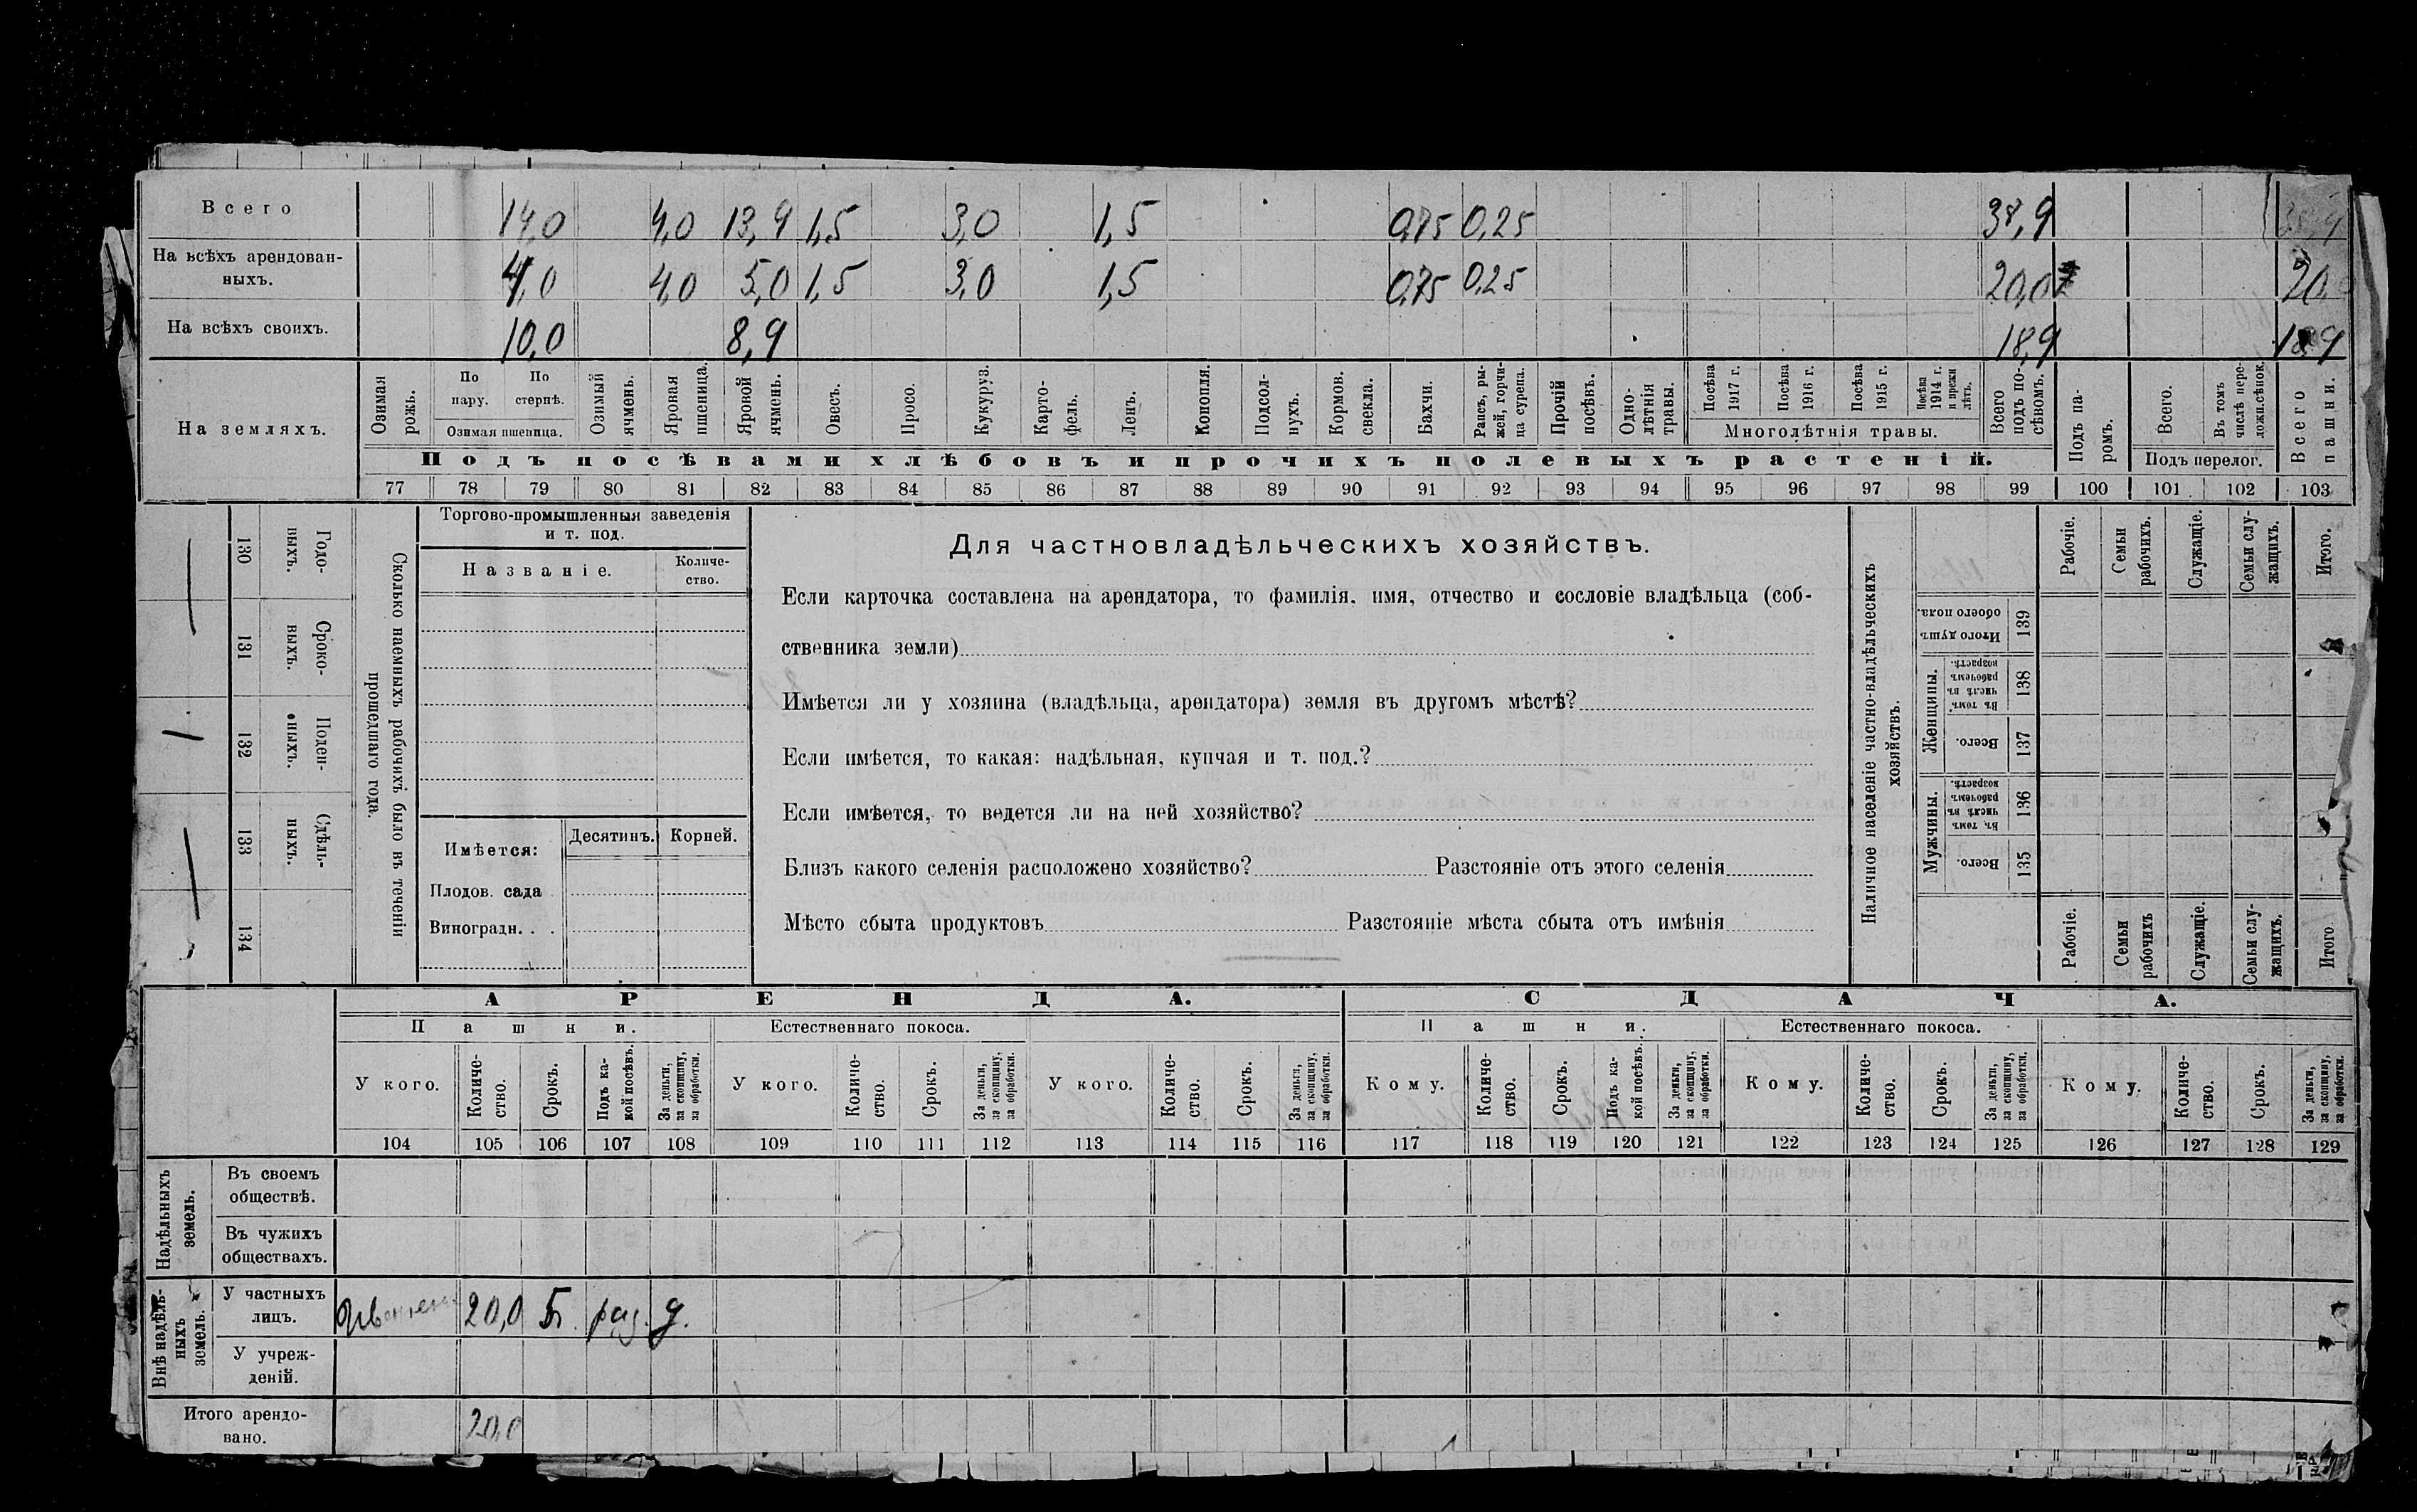 Всего 14,0 4,0 13,9 1,5 3,0 1,5 0,75 0,25 38,9
На всѣхъ арендован-
ныхъ. 4,0 4,0 5,0 1,5 3,0 1,5 0,75 0,25 20,0 20,
На всѣхъ своихъ. 10,0 8,9 18,9
На земляхъ.
Озимая рожь.
По пару.
По стернѣ.
Озимая пшеница.
Озимый ячмень.
Яровая пшеница.
Яровой ячмень.
Овесъ.
Просо.
Кукуруз.
Карто-
фель.
Ленъ.
Конопля.
Подсол-
нухъ.
Кормов. свекла.
Бахчи.
Рапсъ, ры-
жей, горчи-
ца сурепа.
Прочій посѣвъ.
Одно-
лѣтнія травы.
Посѣва 1917 г.
Посѣва 1916 г.
Посѣва 1915 г.
Посѣва 1914 г. и прежн лѣтъ.
Многолѣтнія травы.
Всего подъ по-
сѣвомъ.
Подъ па-
ромъ.
Всего.
Въ томъ числѣ пере-
ложн.сѣнок.
Подъ перелог.
Всего пашни.
Подъ посѣвами хлѣбовъ и прочихъ полевыхъ растеній.
77 78 79 80 81 82 83 84 85 86 87 88 89 90 91 92 93 94 95 96 97 98 99 100 101 102 103
Сколько наемныхъ рабочихъ было въ теченіи
прошедшаго года.
Годо-
выхъ. 130
Сроко-
выхъ. 131
Поден-
ныхъ. 132
Сдѣль-
ныхъ. 133
134
Торгово-промышленныя заведенія
и т. под.
Названіе.
Количе-
ство.
Имѣется: Десятинъ. Корней.
Плодов. сада
Виноградн. . .
Для частновладѣльческихъ хозяйствъ.
Если карточка составлена на арендатора, то фамилія, имя, отчество и сословіе владѣльца (соб-
ственника земли)
Имѣется ли у хозяина (владѣльца, арендатора) земля въ другомъ мѣстѣ?
Если имѣется, то какая: надѣльная, купчая и т. под.?
Если имѣется, то ведется ли на ней хозяйство?
Близъ какого селенія расположено хозяйство? Разстояніе отъ этого селенія
Мѣсто сбыта продуктовъ Разстояніе мѣста сбыта отъ имѣнія
Наличное населеніе частно-владѣльческихъ
хозяйствъ.
Рабочіе.
Семьи рабочихъ.
Служащіе.
Семьи слу-
жащихъ.
Итого.
Итого душъ обоего пола. 139
Женщины.
Въ томъ числѣ въ рабочемъ возрастѣ. 138
Всего. 137
Мужчины.
Въ томъ числѣ въ рабочемъ возрастѣ. 136
Всего. 135
Рабочіе.
Семьи рабочихъ
Служащіе.
Семьи слу-
жащихъ.
Итого.
АРЕНДА. СДАЧА.
Пашни. Естественнаго покоса. Пашня. Естественнаго покоса.
У кого.
Количе-
ство.
Срокъ.
Подъ ка-
кой посѣвъ.
За деньги,
за скопщину,
за обработки.
У кого.
Количе-
ство.
Срокъ.
За деньги,
за скопщину,
за обработки.
У кого.
Количе-
ство.
Срокъ.
За деньги,
за скопщину,
за обработки.
Кому.
Количе-
ство.
Срокъ.
Подъ ка-
кой посѣвъ.
За деньги,
за скопщину,
за обработки.
Кому.
Количе-
ство.
Срокъ.
За деньги,
за скопщину,
за обработки.
Кому.
Количе-
ство.
Срокъ.
За деньги,
за скопщину,
за обработки.
104 105 106 107 108 109 110 111 112 113 114 115 116 117 118 119 120 121 122 123 124 125 126 127 128 129
Надѣльныхъ
земель.
Въ своемъ
обществѣ.
Въ чужихъ
обществахъ.
Внѣ надѣль-
ныхъ
земель.
У частныхъ
лицъ. 20,0 раз. д.
У учреж-
деній.
Итого арендо-
вано. 20,0